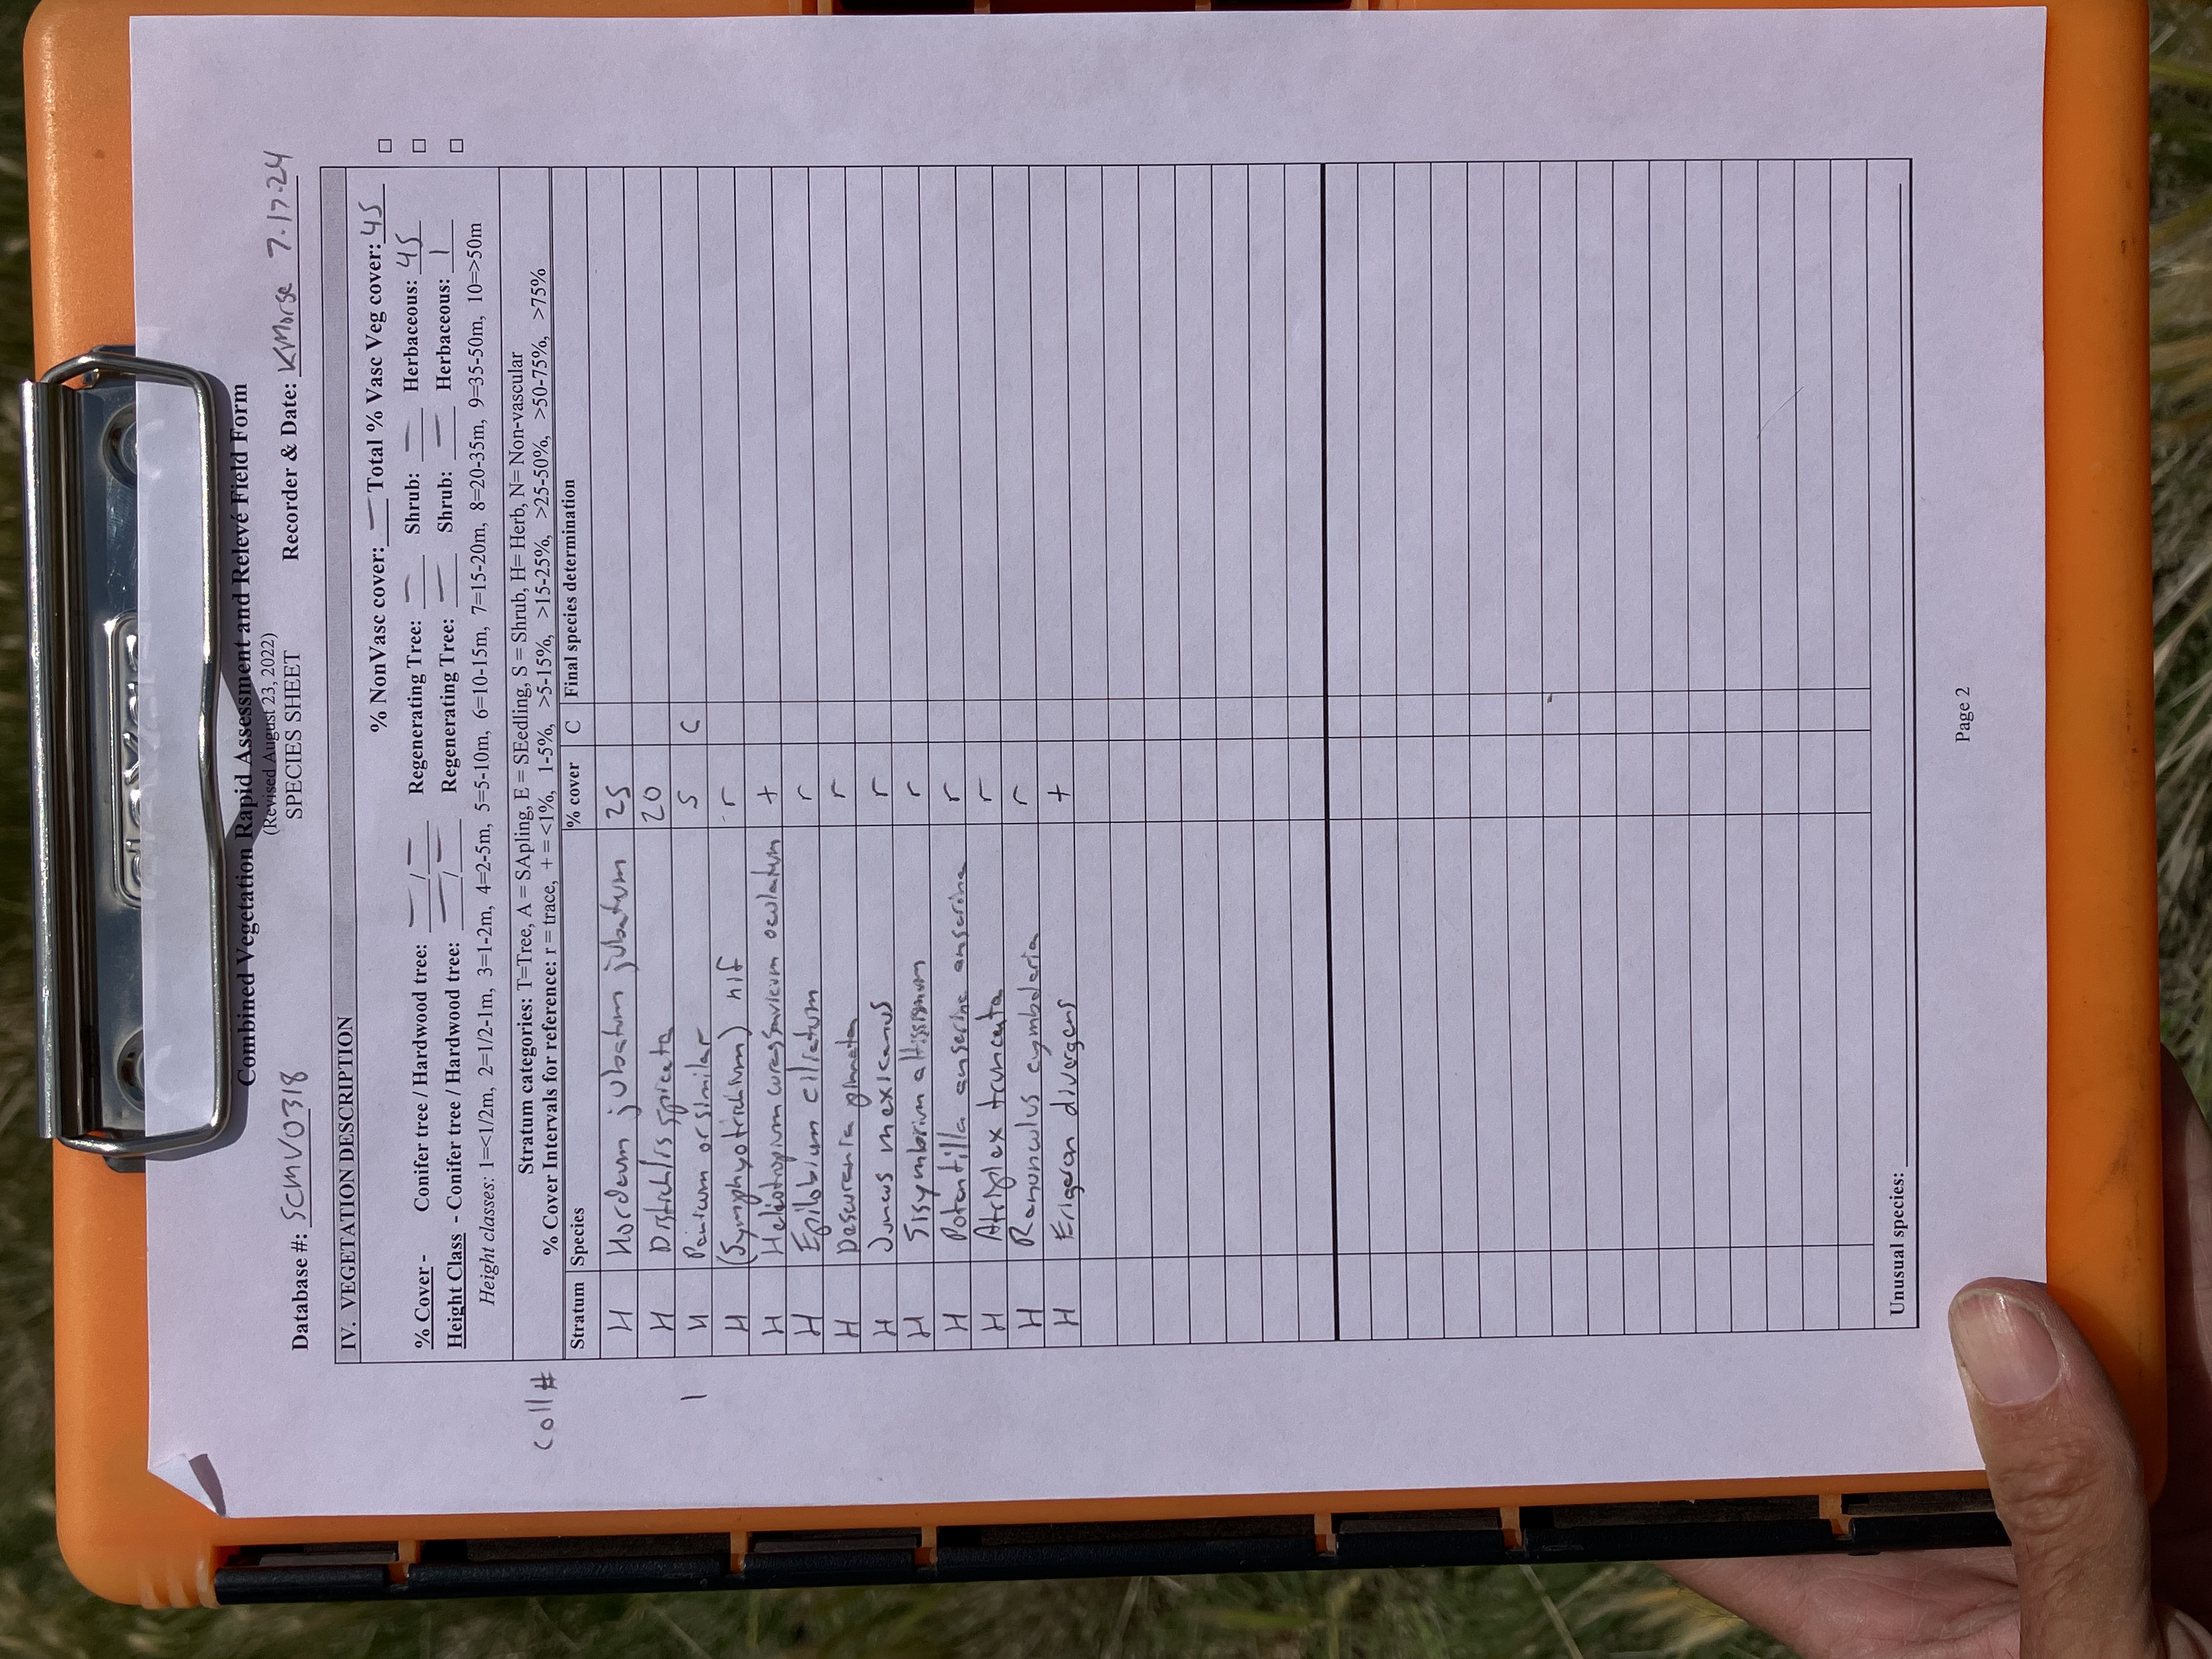 Combined Vegetation Rapid Assessment and Relevé Field Form
(Revised August 23, 2022)
SPECIES SHEET
Database #: SCMV0318 Recorder & Date: KMorse 7.17.24
IV. VEGETATION DESCRIPTION
% NonVasc cover: — Total % Vasc Veg cover: 45
% Cover - Conifer tree / Hardwood tree: — / — Regenerating Tree: — Shrub: — Herbaceous: 45
Height Class - Conifer tree / Hardwood tree: — / — Regenerating Tree: — Shrub: — Herbaceous: 1
Height classes: 1=<1/2m, 2=1/2-1m, 3=1-2m, 4=2-5m, 5=5-10m, 6=10-15m, 7=15-20m, 8=20-35m, 9=35-50m, 10=>50m
Stratum categories: T=Tree, A = SApling, E = SEedling, S = Shrub, H= Herb, N= Non-vascular
% Cover Intervals for reference: r = trace, + = <1%, 1-5%, >5-15%, >15-25%, >25-50%, >50-75%, >75%
Coll #
Stratum Species % cover C Final species determination
H Hordeum jubatum jubatum 25
H Distichlis spicata 20
1 H Panicum or similar 5 C
H (Symphyotrichum) nif r
H Heliotropium curassavicum oculatum +
H Epilobium ciliatum r
H Descurainia pinnata r
H Juncus mexicanus r
H Sisymbrium altissimum r
H Potentilla anserina anserina r
H Atriplex truncata r
H Ranunculus cymbalaria r
H Erigeron divergens +
Unusual species:
Page 2